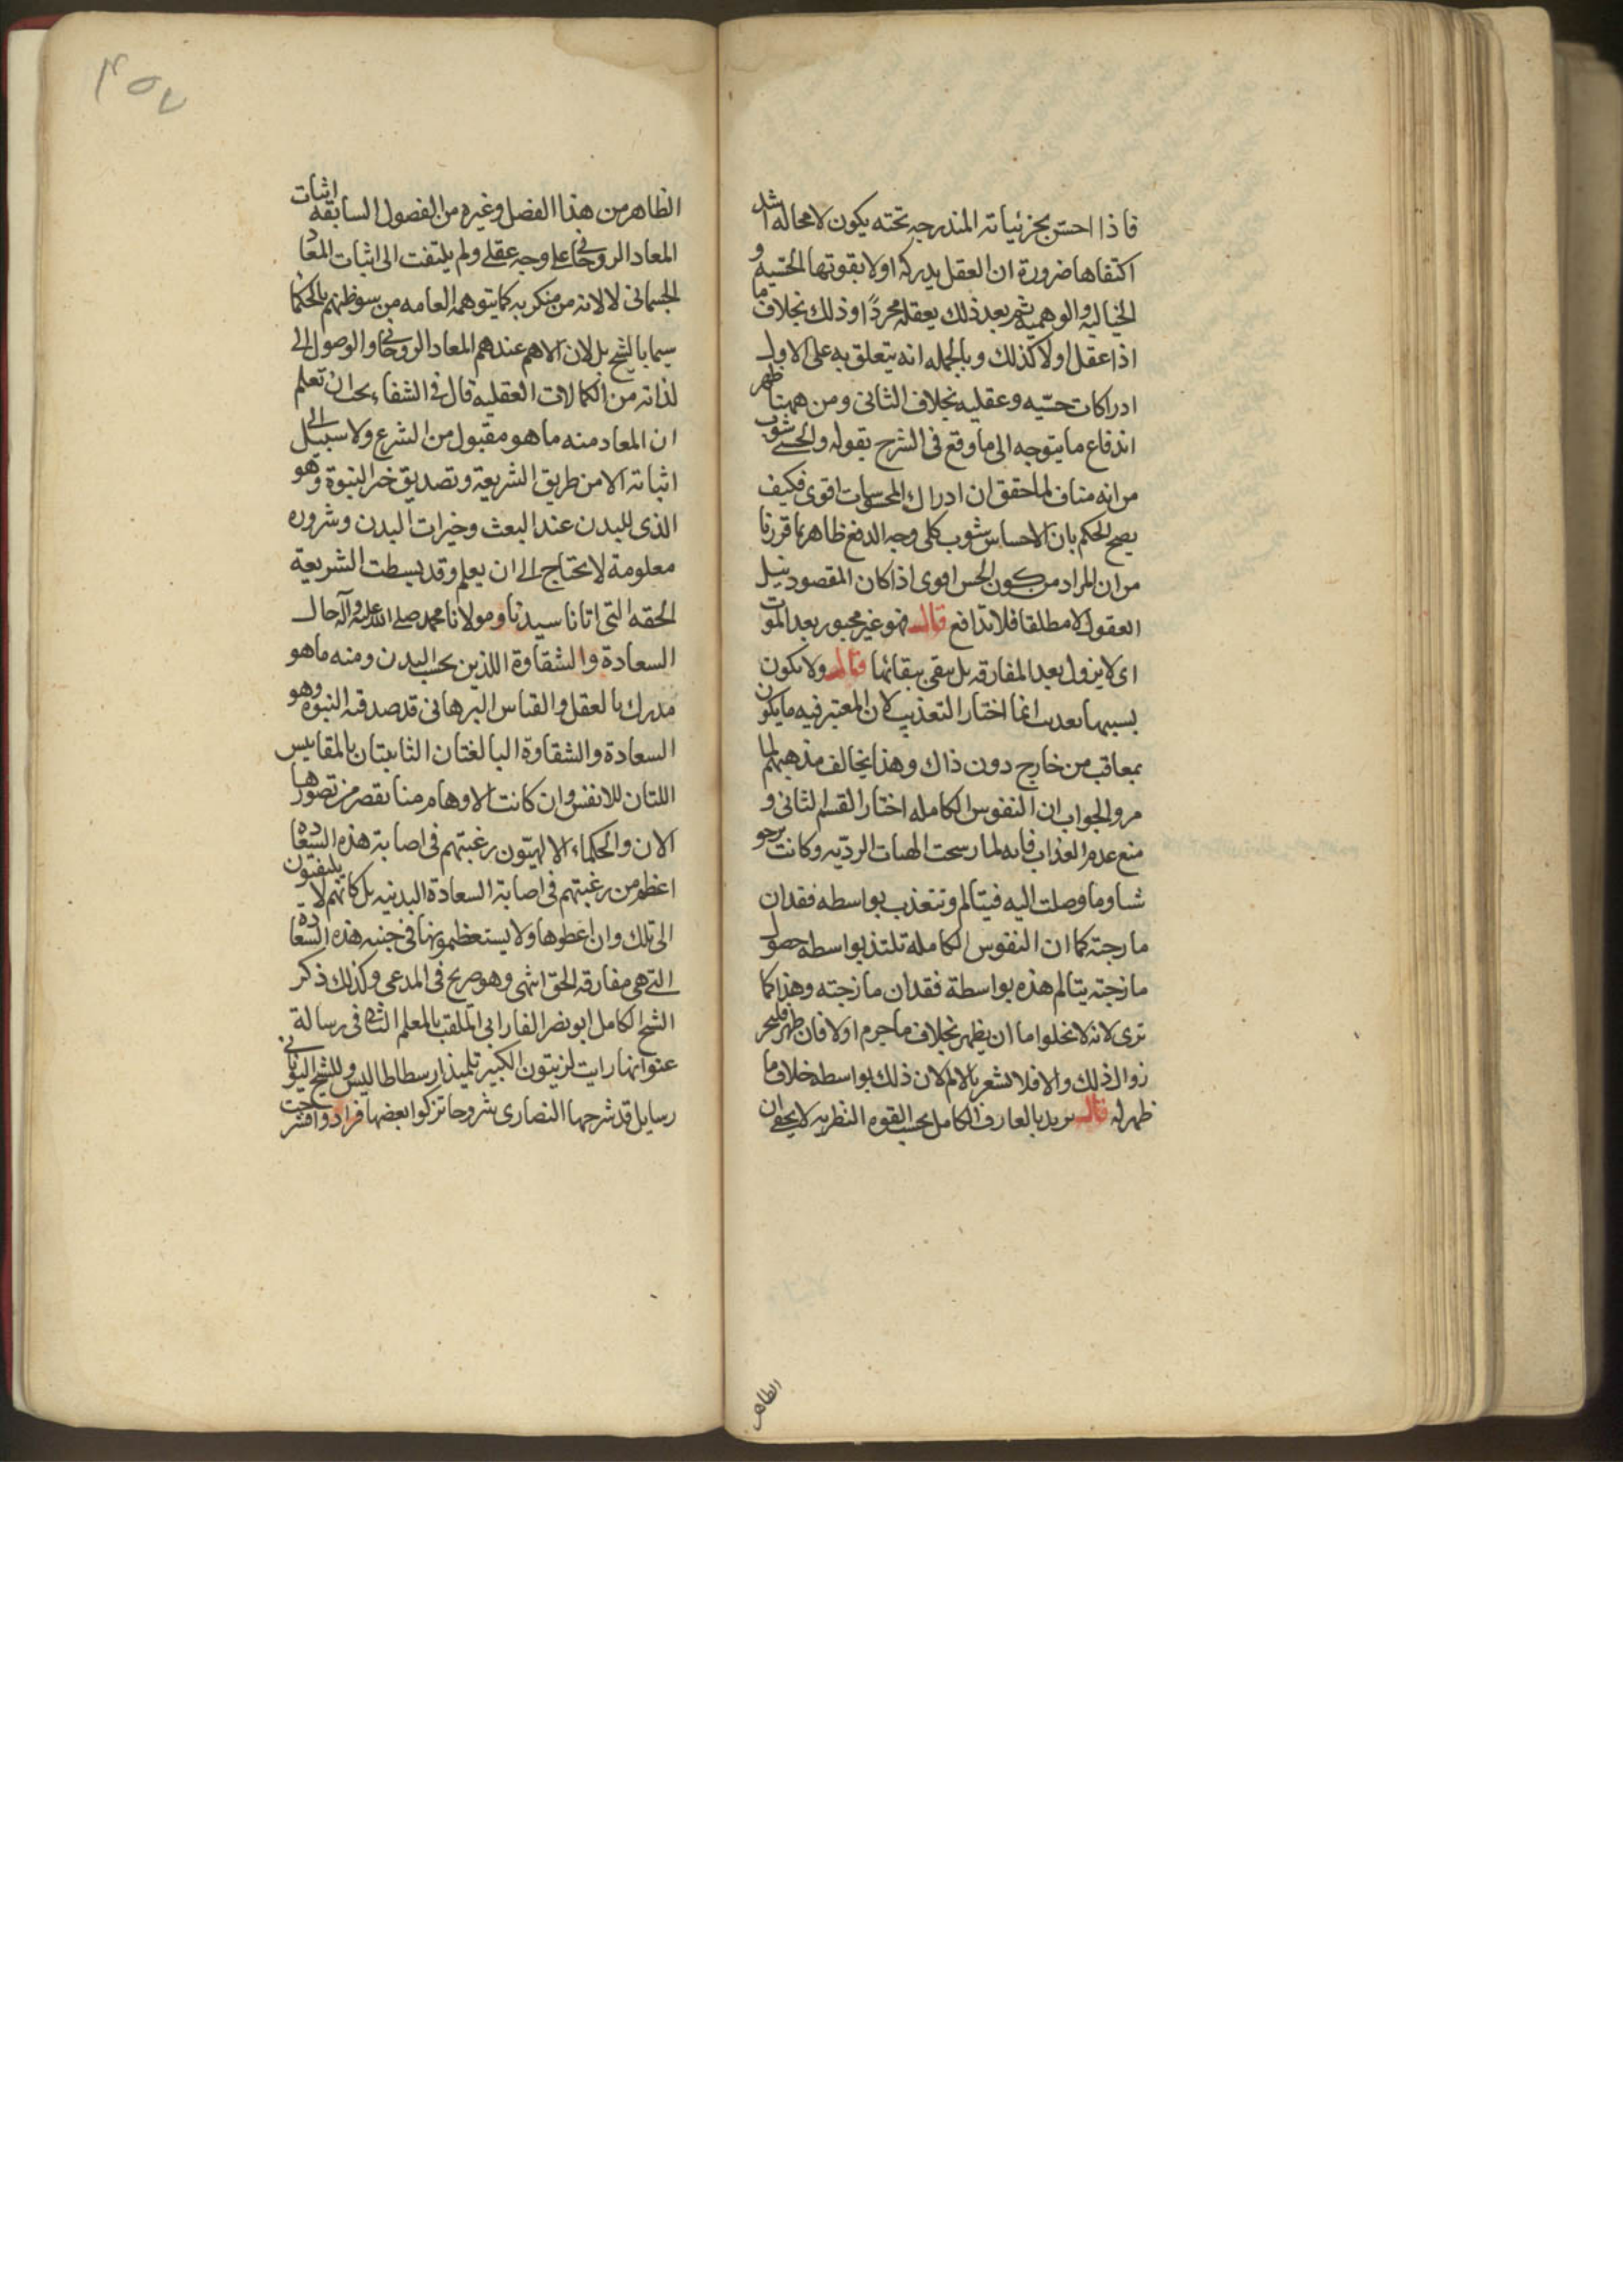 فاذا احس بجزئياته المندرجه تحته يكون لا محاله اشد
اكتفاها ضرورة ان العقل يدركه اولا بقوتها الحسيه و
الخياليه والوهميه ثم بعد ذلك يعقله مجردا وذلك بخلاف ما
اذا عقل اولا كذلك وبالجمله انه يتعلق به على الاول
ادراكات حسيه وعقليه بخلاف الثانى ومن ههنا ظهر
اندفاع ما يتوجه الى ما وقع فى الشرح بقوله والحسى شوب
من انه مناف لما حقق ان ادراك المحسوسات اقوى فكيف
يصح الحكم بان الاحساس شوب كلى وجه الدفع ظاهر بما قررنا
من ان المراد من كون الحس اقوى اذا كان المقصود بنيل
العقول لا مطلقا فلا تدافع قال فهو غير مجبور بعد الموت
اى لا يزول بعد المفارقه بل يبقى ببقائها قال ولا يكون
بسببها تعذب انما اختار التعذيب لان المعتبر فيه ما يكون
بمعاقب من خارج دون ذاك وهذا يخالف مذهبهم لما
مر والجواب ان النفوس الكامله اختار القسم الثانى و
منع عدم العذاب فانه لما رسخت الهيات الرديه وكانت ترجو
شيا وما وصلت اليه فيتالم وتتعذب بواسطه فقدان
ما رجته كما ان النفوس الكامله تلتذ بواسطه حصول
ما رجته يتالم هذه بواسطة فقدان ما رجته وهذا كما
ترى لانه لا يخلوا ما ان يظهر بخلاف ما جزم اولا فان ظهر فليجز
زوال ذلك والا فلا تشعر بالالم لان ذلك بواسطه خلاف ما
ظهر له قال يريد بالعارف الكامل بحسب القوه النظريه لا يخفى ان
الظاهر
٤٥٧
الظاهر من هذا الفصل وغيره من الفصول السابقه اثبات
المعاد الروحانى على وجه عقلى ولم يلتفت الى اثبات المعاد
الجسمانى لا لانه من منكريه كما يتوهمه العامه من سوء ظنهم بالحكما
سيما بالشيخ بل لان الاهم عندهم المعاد الروحانى والوصول الى
لذاته من الكمالات العقليه قال فى الشفاء يجب ان تعلم
ان المعاد منه ما هو مقبول من الشرع ولا سبيل الى
اثباته الا من طريق الشريعة وتصديق خبر النبوة وهو
الذى للبدن عند البعث وخيرات البدن وشروره
معلومة لا يحتاج الى ان يعلم وقد بسطت الشريعة
الحقه التى اتانا سيدنا ومولانا محمد صلى الله عليه وآله حال
السعادة والشقاوة اللذين بحسب البدن ومنه ما هو
مدرك بالعقل والقياس البرهانى قد صدقته النبوه وهو
السعادة والشقاوة البالغتان الثابتتان بالمقاييس
اللتان للانفس وان كانت الاوهام منا تقصر من تصورها
الان والحكماء الالهيون رغبتهم فى اصابة هذه السعاده
اعظم من رغبتهم فى اصابة السعادة البدنيه بل كانهم لا يلتفتون
الى تلك وان اعطوها ولا يستعظمونها فى جنبه هذه السعاده
التى هى مفارقه الحق انتهى وهو صريح فى المدعى وكذلك ذكر
الشيخ الكامل ابو نصر الفارابى الملقب بالمعلم الثانى فى رسالة
عنوانها رايت لزنيتون الكبير تلميذ ارسطاطاليس وللشيخ اليونانى
رسايل قد شرحها النصارى شروحا تركوا بعضها